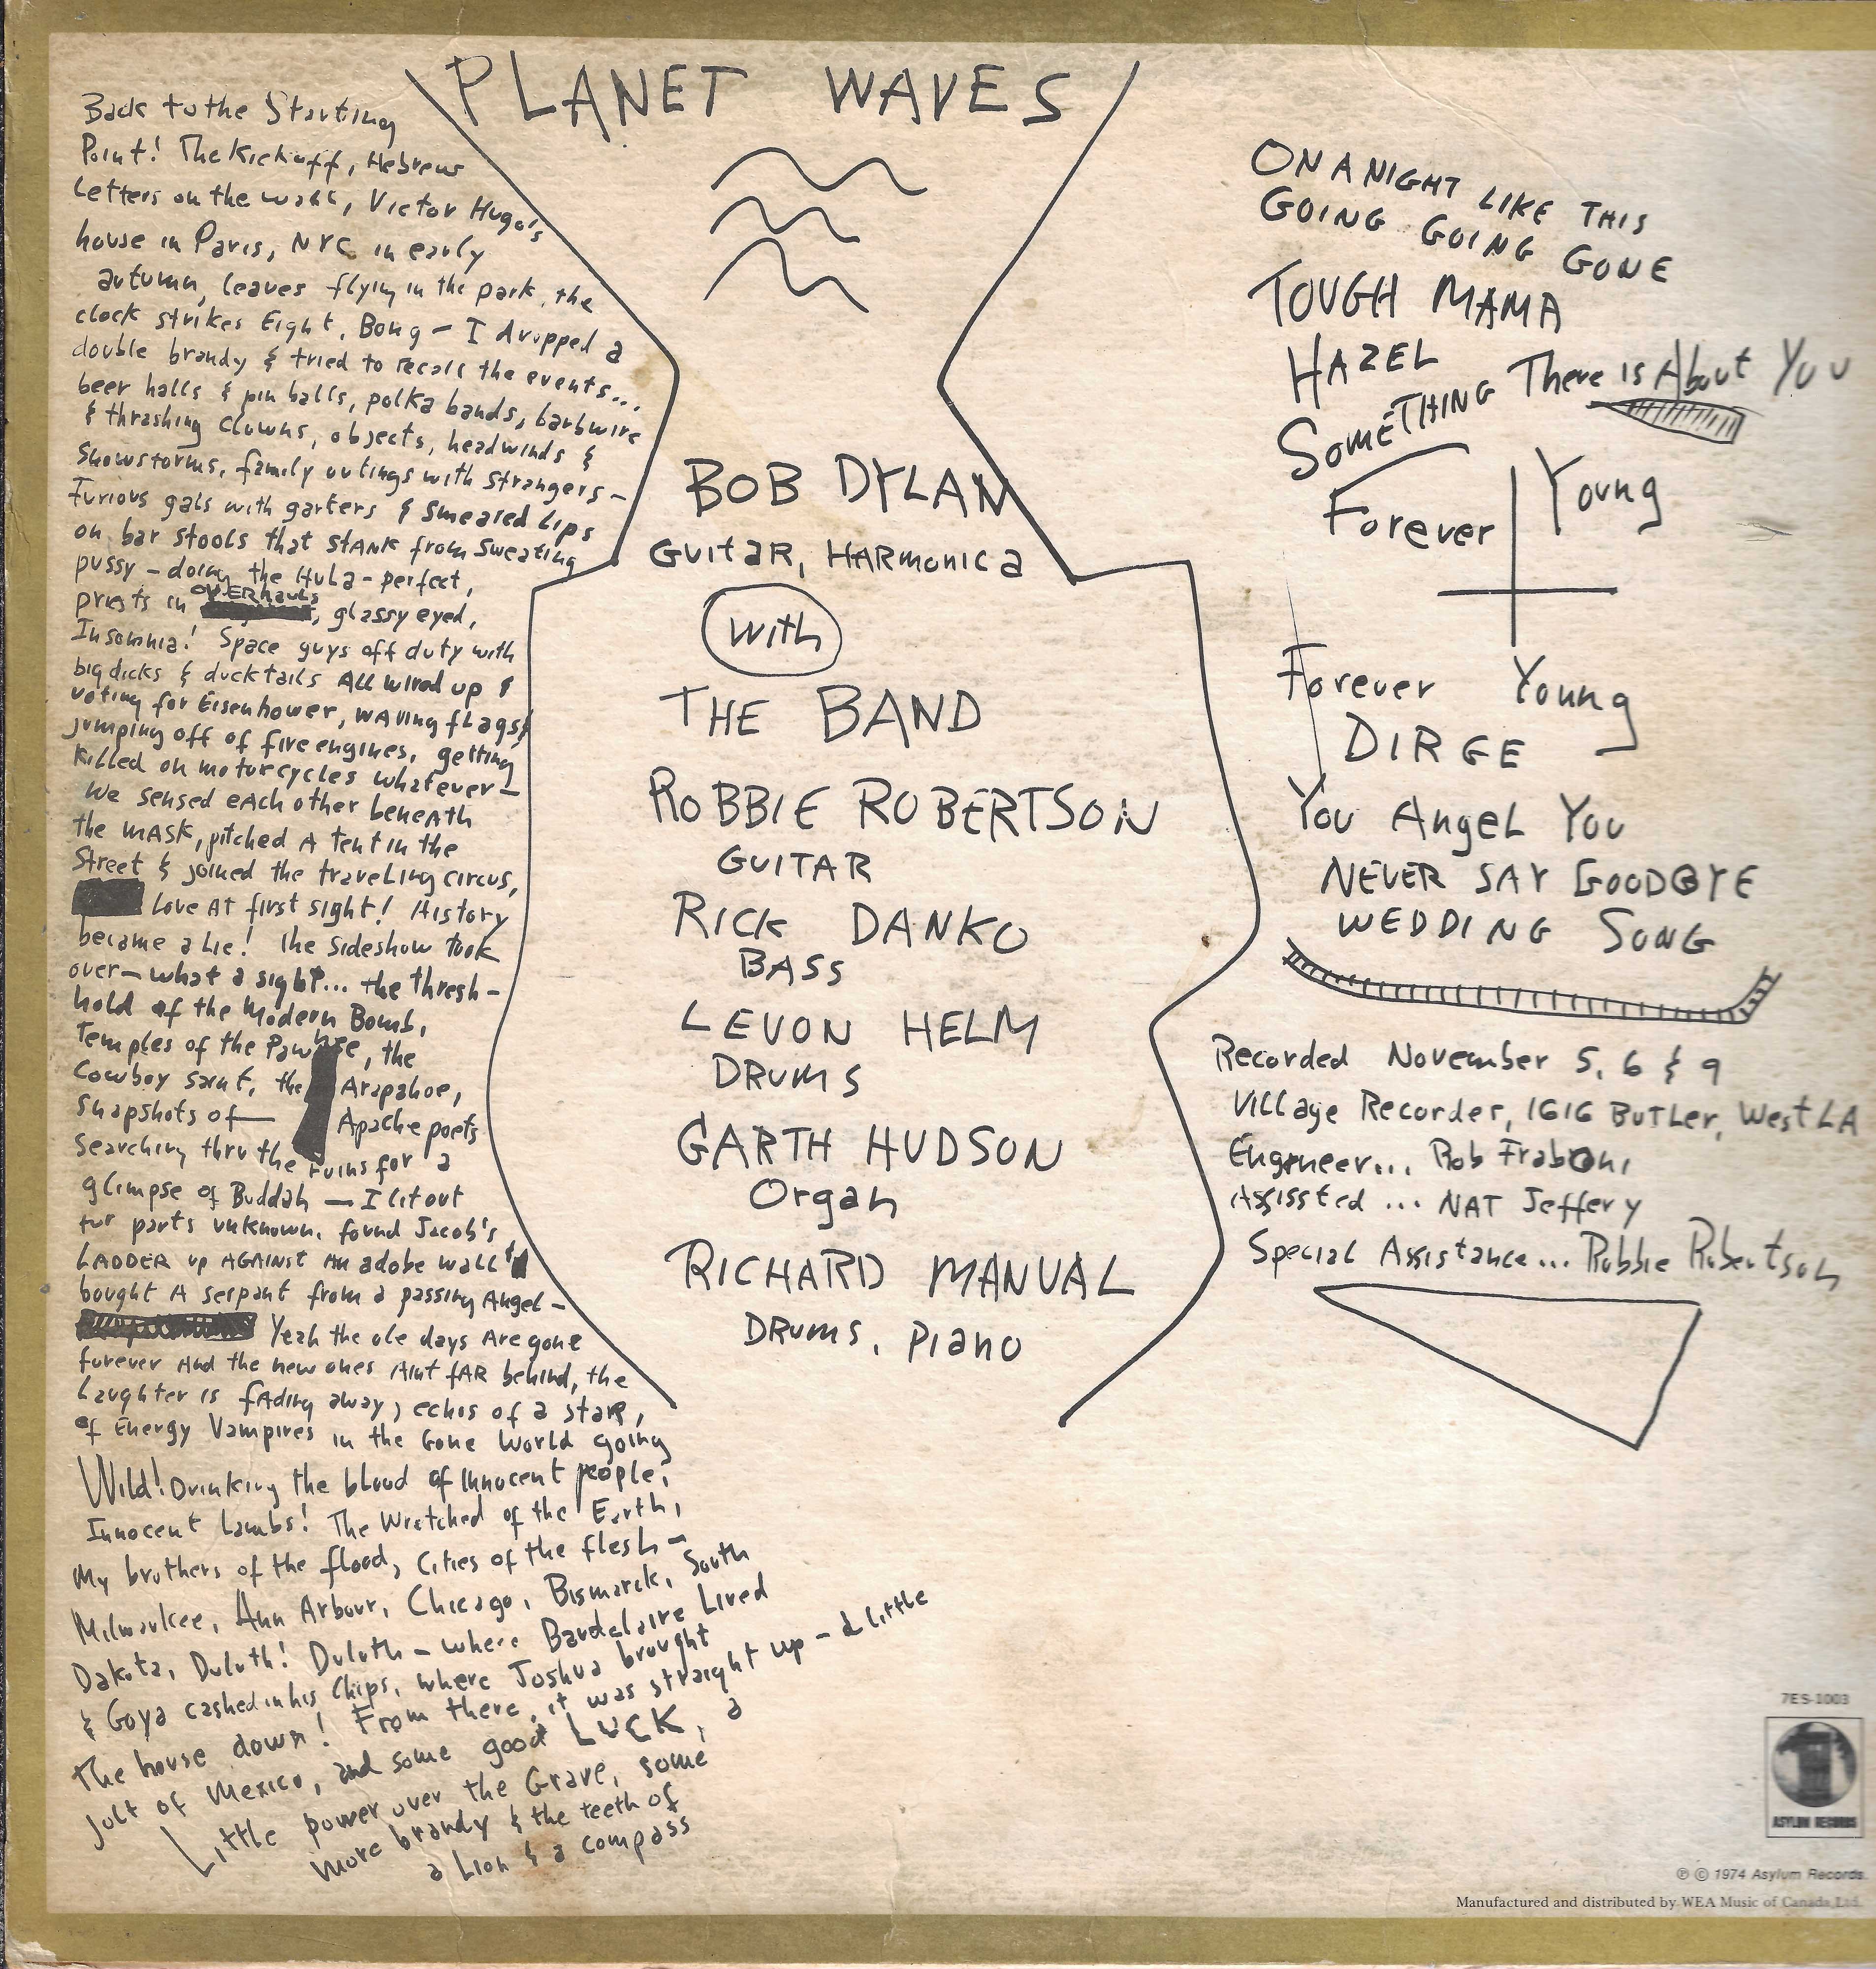 PLANET WAVES
Back to the Starting
Point! The Kickoff, Hebrew
Letters on the wall, Victor Hugo's
house in Paris, NYC in early
autumn, leaves flying in the park, the
clock strikes Eight, Bong - I dropped a
double brandy & tried to recall the events...
beer halls & pin balls, polka bands, barbwire
& thrashing clowns, objects, headwinds &
snowstorms, family outings with strangers -
Furious gals with garters & smeared Lips
on bar stools that stank from sweating
pussy - doing the Hula - perfect,
priests in OVERhauls, glassy eyed,
Insomnia! Space guys off duty with
big dicks & ducktails All wired up &
voting for Eisenhower, waving flags &
jumping off of fire engines, getting
killed on motorcycles whatever -
We sensed each other beneath
the mask, pitched a tent in the
Street & joined the traveling circus,
Love at first sight! History
became a Lie! the sideshow took
over - what a sight... the thresh-
hold of the Modern Bomb,
Temples of the Pawnee, the
Cowboy saint, the Arapahoe,
snapshots of — Apache poets
searching thru the ruins for a
glimpse of Buddah — I lit out
for parts unknown, found Jacob's
LADDER up AGAINST an adobe wall &
bought A serpant from a passing Angel -
Yeah the ole days Are gone
forever And the new ones Aint fAR behind, the
Laughter is fading away, echos of a staR,
of Energy Vampires in the Gone World going
Wild! Drinking the blood of innocent people,
Innocent Lambs! The Wretched of the Earth,
My brothers of the flood, Cities of the flesh -
Milwaukee, Ann Arbour, Chicago, Bismarck, South
Dakota, Duluth! Duluth - where Baudelaire Lived
& Goya cashed in his Chips, where Joshua brought
The house down! From there, it was straight up - a Little
jolt of Mexico, and some good LUCK, a
Little power over the Grave, some
more brandy & the teeth of
a Lion & a compass
BOB DYLAN
Guitar, HARmonica
With
THE BAND
ROBBIE ROBERTSON
GUITAR
RICK DANKO
BASS
LEVON HELM
DRUMS
GARTH HUDSON
Organ
RICHARD MANUAL
DRUMS, Piano
ON A NIGHT LIKE THIS
GOING GOING GONE
TOUGH MAMA
HAZEL
SOMETHING There is About You
Forever Young
Forever Young
DIRGE
You Angel You
NEVER SAY GOODBYE
WEDDING SONG
Recorded November 5, 6 & 9
Village Recorder, 1616 Butler, West LA
Engineer... Rob Fraboni
Assissted ... NAT Jeffery
Special Assistance... Robbie Robertson
7ES-1003
ASYLUM RECORDS
℗ © 1974 Asylum Records.
Manufactured and distributed by WEA Music of Canada, Ltd.